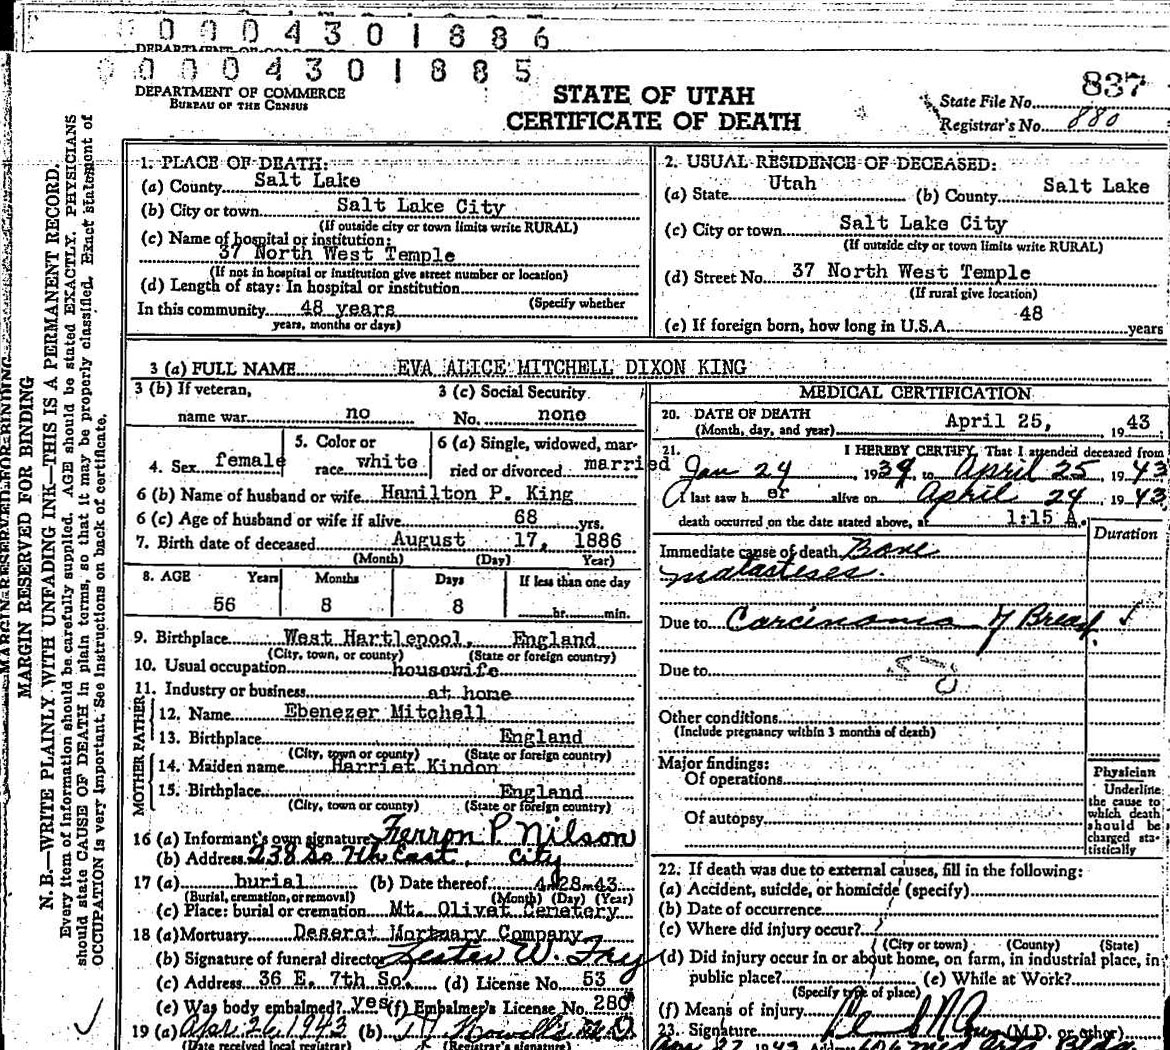 0 0 0 4 3 0 1 8 8 6
0 0 0 4 3 0 1 8 8 5
DEPARTMENT OF COMMERCE
BUREAU OF THE CENSUS
STATE OF UTAH
CERTIFICATE OF DEATH
State File No. 837
Registrar's No. 880
MARGIN RESERVED FOR BINDING
N. B.—WRITE PLAINLY WITH UNFADING INK—THIS IS A PERMANENT RECORD.
Every item of information should be carefully supplied. AGE should be stated EXACTLY. PHYSICIANS
should state CAUSE OF DEATH in plain terms, so that it may be properly classified. Exact statement of
OCCUPATION is very important. See instructions on back of certificate.
1. PLACE OF DEATH:
(a) County Salt Lake
(b) City or town Salt Lake City
(If outside city or town limits write RURAL)
(c) Name of hospital or institution:
37 North West Temple
(If not in hospital or institution give street number or location)
(d) Length of stay: In hospital or institution
(Specify whether
In this community 48 years
years, months or days)
2. USUAL RESIDENCE OF DECEASED:
(a) State Utah (b) County Salt Lake
(c) City or town Salt Lake City
(If outside city or town limits write RURAL)
(d) Street No. 37 North West Temple
(If rural give location)
(e) If foreign born, how long in U.S.A. 48 years
3 (a) FULL NAME EVA ALICE MITCHELL DIXON KING
3 (b) If veteran, 3 (c) Social Security
name war no No. none
4. Sex female 5. Color or race white 6 (a) Single, widowed, married or divorced married
6 (b) Name of husband or wife Hamilton P. King
6 (c) Age of husband or wife if alive 68 yrs.
7. Birth date of deceased August 17, 1886
(Month) (Day) Year)
8. AGE Years Months Days If less than one day
56 8 8 hr. min.
9. Birthplace West Hartlepool, England
(City, town, or county) (State or foreign country)
10. Usual occupation housewife
11. Industry or business at home
FATHER
12. Name Ebenezer Mitchell
13. Birthplace England
(City, town or county) (State or foreign country)
MOTHER
14. Maiden name Harriet Kindon
15. Birthplace England
(City, town or county) (State or foreign country)
16 (a) Informant's own signature Ferron P. Nilson
(b) Address 238 So 7th East, City
17 (a) burial (b) Date thereof 4-28-43
(Burial, cremation, or removal) (Month) (Day) (Year)
(c) Place: burial or cremation Mt. Olivet Cemetery
18 (a) Mortuary Deseret Mortuary Company
(b) Signature of funeral director Lester W. Fry
(c) Address 36 E. 7th So. (d) License No. 53
(e) Was body embalmed? yes (f) Embalmer's License No. 280
19 (a) April 26, 1943 (b)
(Date received local registrar) (Registrar's signature)
MEDICAL CERTIFICATION
20. DATE OF DEATH April 25, 1943
(Month, day, and year)
21. I HEREBY CERTIFY, That I attended deceased from
Jan 24 1939, to April 25, 1943
I last saw her alive on April 24 1943
death occurred on the date stated above, at 1:15 A.
Duration
Immediate cause of death Bone
matasteses.
Due to Carcinoma of Breast.
Due to
Other conditions
(Include pregnancy within 3 months of death)
Major findings:
Of operations
Of autopsy
Physician
Underline
the cause to
which death
should be
charged sta-
tistically
22. If death was due to external causes, fill in the following:
(a) Accident, suicide, or homicide (specify)
(b) Date of occurrence
(c) Where did injury occur?
(City or town) (County) (State)
(d) Did injury occur in or about home, on farm, in industrial place, in
public place? (e) While at Work?
(Specify type of place)
(f) Means of injury
23. Signature (M.D. or other)